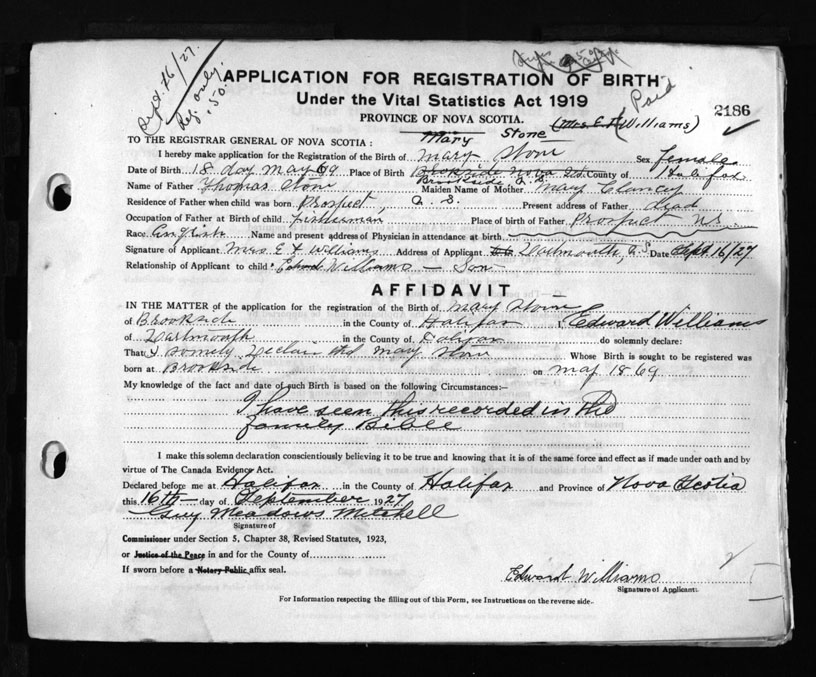 Sept. 16/27.
Reg. only.
.50.
APPLICATION FOR REGISTRATION OF BIRTH
Under the Vital Statistics Act 1919
Paid
PROVINCE OF NOVA SCOTIA.
2186
Mary Stone (Mrs. E. F. Williams)
TO THE REGISTRAR GENERAL OF NOVA SCOTIA :
I hereby make application for the Registration of the Birth of Mary Stone Sex female
Date of Birth 18 day May 69 Place of Birth Brookside County of Halifax
Brookside N. S.
Name of Father Thomas Stone Maiden Name of Mother Mary Clancey
Residence of Father when child was born Prospect, N. S. Present address of Father dead
Occupation of Father at Birth of child fisherman Place of birth of Father Prospect NS
Race English Name and present address of Physician in attendance at birth
Signature of Applicant Mrs E F Williams Address of Applicant Dartmouth, N.S. Date Sept. 16/27
Relationship of Applicant to child: Edward Williams — Son
AFFIDAVIT
IN THE MATTER of the application for the registration of the Birth of Mary Stone
of Brookside in the County of Halifax I, Edward Williams
of Dartmouth in the County of Halifax do solemnly declare:
That I Mary Stone Whose Birth is sought to be registered was
born at Brookside on May 18 69
My knowledge of the fact and date of such Birth is based on the following Circumstances:—
I have seen this recorded in the
family Bible
I make this solemn declaration conscientiously believing it to be true and knowing that it is of the same force and effect as if made under oath and by
virtue of The Canada Evidence Act.
Declared before me at Halifax in the County of Halifax and Province of Nova Scotia
this 16th day of September 1927
Guy Meadows Mitchell
Signature of
Commissioner under Section 5, Chapter 38, Revised Statutes, 1923,
or Justice of the Peace in and for the County of
If sworn before a Notary Public affix seal.
Edward Williams
Signature of Applicant
For Information respecting the filling out of this Form, see Instructions on the reverse side.